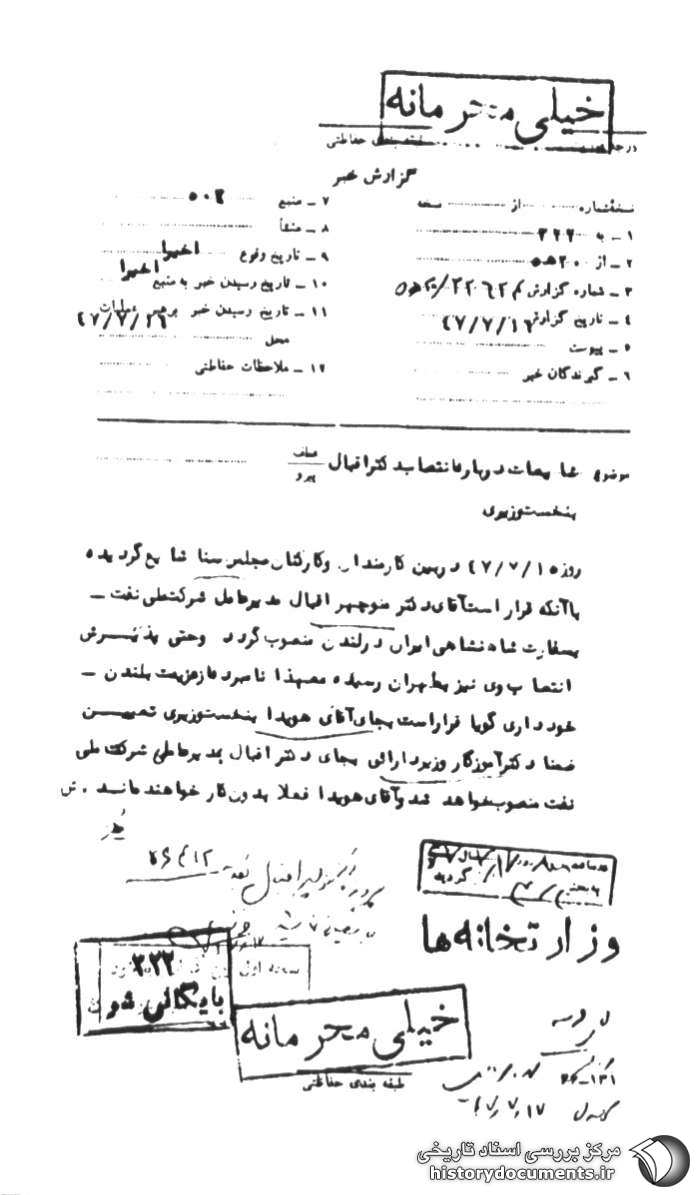 خیلی محرمانه
طبقه بندی حفاظتی
گزارش خبر
نسخه شماره از نسخه
۱ ـ به ۳۲۲
۲ ـ از ۲۰ ه ۵
۳ ـ شماره گزارش
۴ ـ تاریخ گزارش
۵ ـ پیوست
۶ ـ گیرندگان خبر
۷ ـ منبع
۸ ـ منشأ
۹ ـ تاریخ وقوع اخیرا
۱۰ ـ تاریخ رسیدن خبر به منبع اخیرا
۱۱ ـ تاریخ رسیدن خبر برهبر عملیات
محل
۱۲ ـ ملاحظات حفاظتی
موضوع شایعات درباره انتصاب دکتر اقبال
عطف
پیرو
بنخست وزیری
روز ۴۷/۷/۱۵ دربین کارمندان وکارکنان مجلس سنا شایع گردیده
باآنکه قرار است آقای دکتر منوچهر اقبال مدیرعامل شرکت ملی نفت ـ
بسفارت شاهنشاهی ایران درلندن منصوب گردد وحتی پذیرش
انتصاب وی نیز بطهران رسیده معهذا نامبرده ازعزیمت بلندن ـ
خودداری گویا قراراست بجای آقای هویدا بنخست وزیری تعیین
ضمنا دکترآموزگار وزیردارائی بجای دکتر اقبال بمدیرعاملی شرکت ملی
نفت منصوب خواهد شد وآقای هویدا فعلا بدون کار خواهند ماند . ش
وزارتخانه ها
۳۲۲
بایگانی شود
خیلی محرمانه
طبقه بندی حفاظتی
۴۷/۷/۱۷
مرکز بررسی اسناد تاریخی
historydocuments.ir